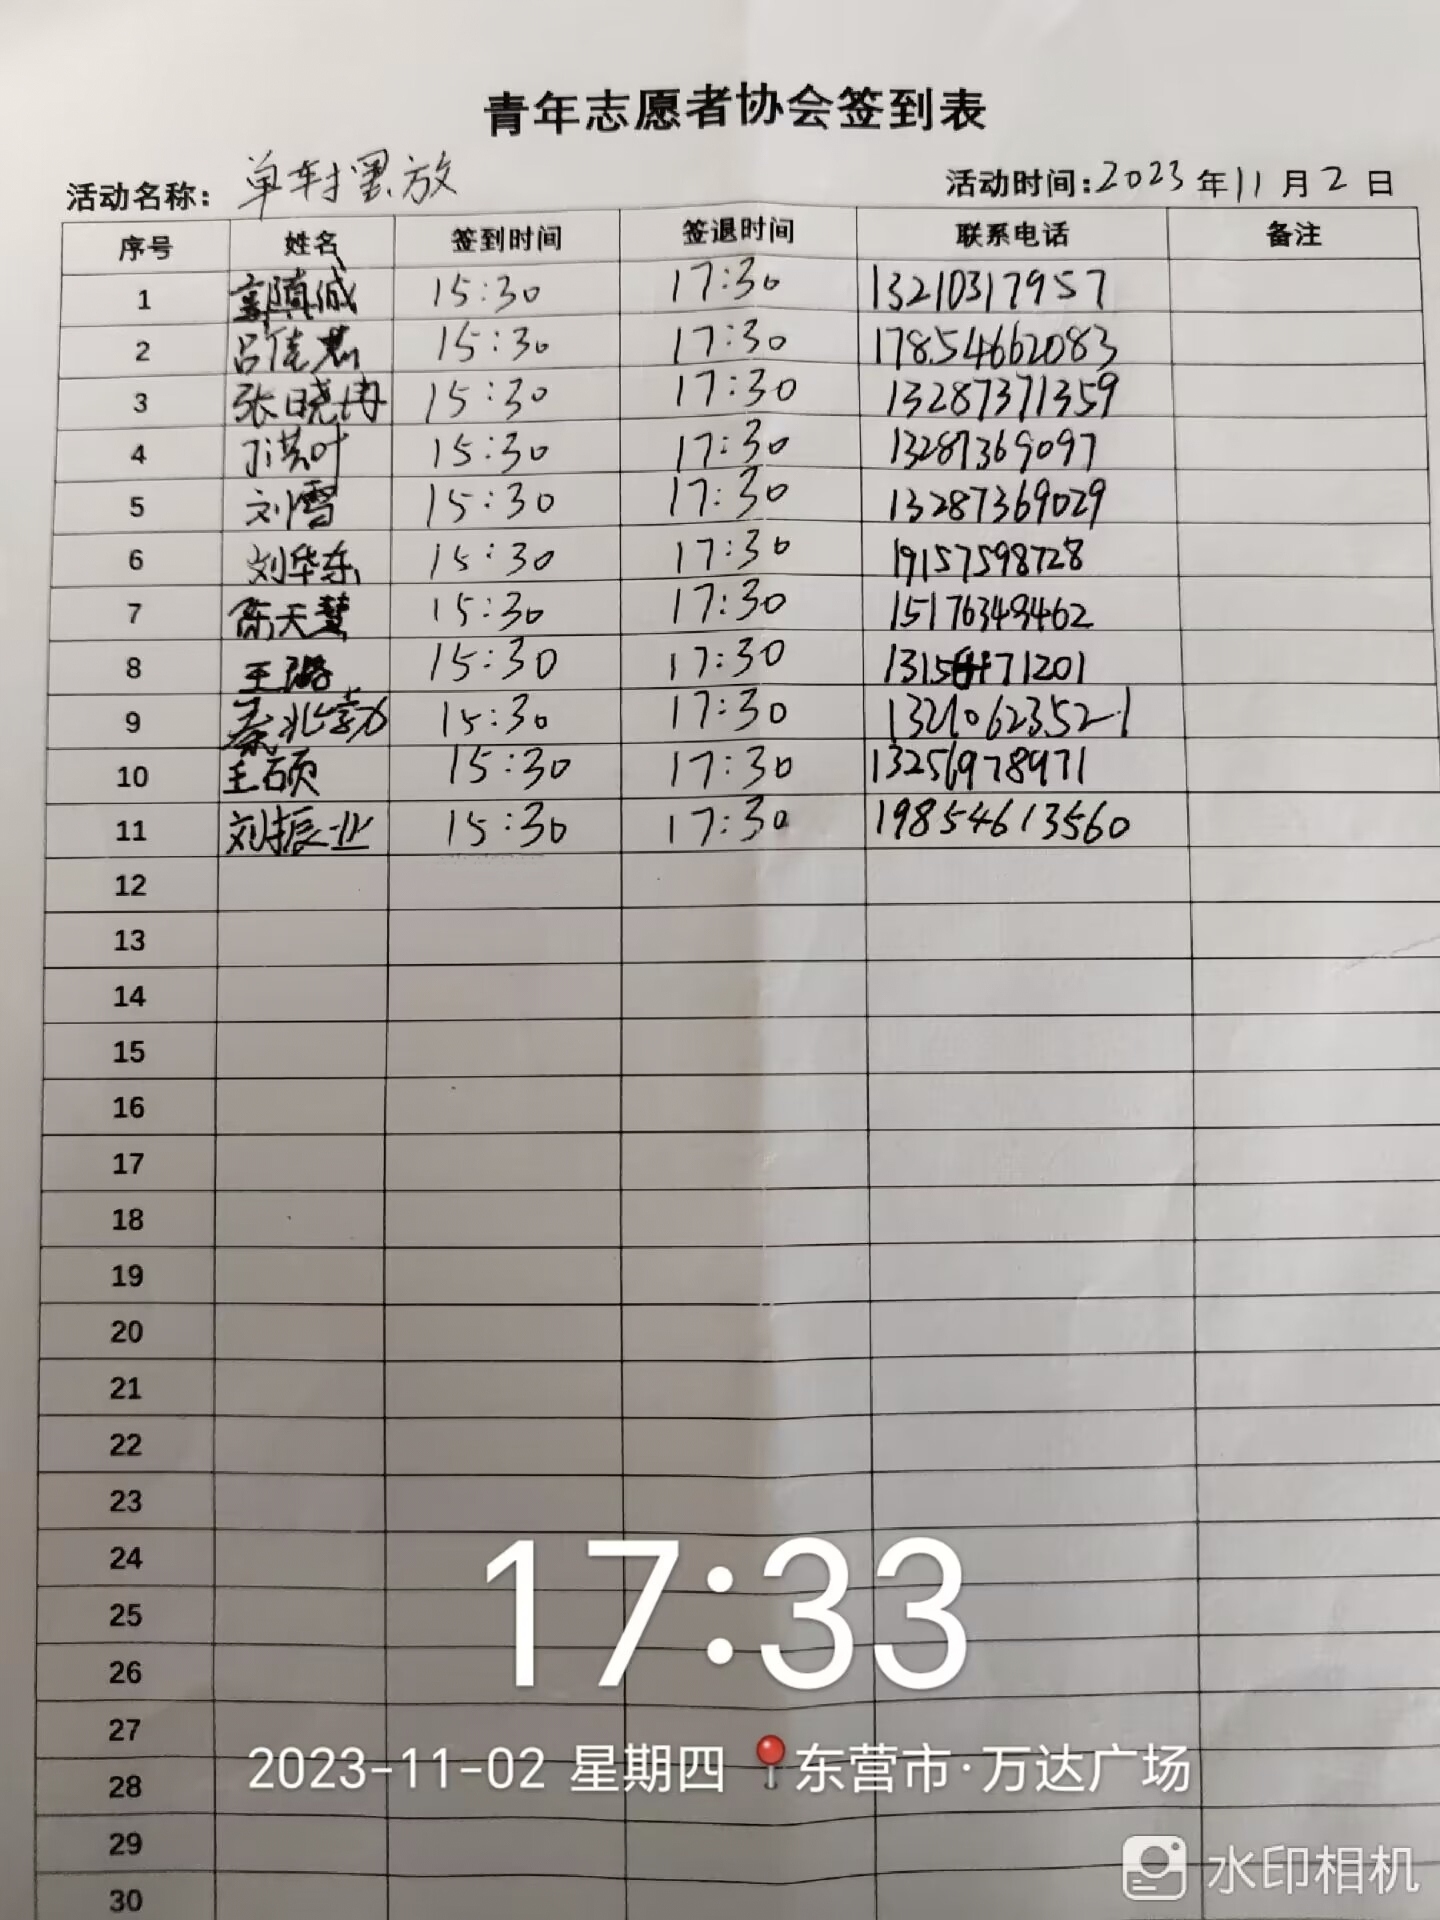 青年志愿者协会签到表
活动名称: 单车摆放 活动时间:2023年11月2日
序号 姓名 签到时间 签退时间 联系电话 备注
1 15:30 17:30 13210317957
2 15:30 17:30 17854662083
3 张晓冉 15:30 17:30 13287371359
4 丁洪叶 15:30 17:30 13287369097
5 刘雪 15:30 17:30 13287369029
6 刘华东 15:30 17:30 19157598728
7 陈天慧 15:30 17:30 15176349462
8 王璐 15:30 17:30
9 15:30 17:30 13210623521
10 王硕 15:30 17:30 13256978971
11 刘振业 15:30 17:30 19854613560
12
13
14
15
16
17
18
19
20
21
22
23
24
25
26
27
28
29
30
17:33
2023-11-02 星期四 东营市·万达广场
水印相机